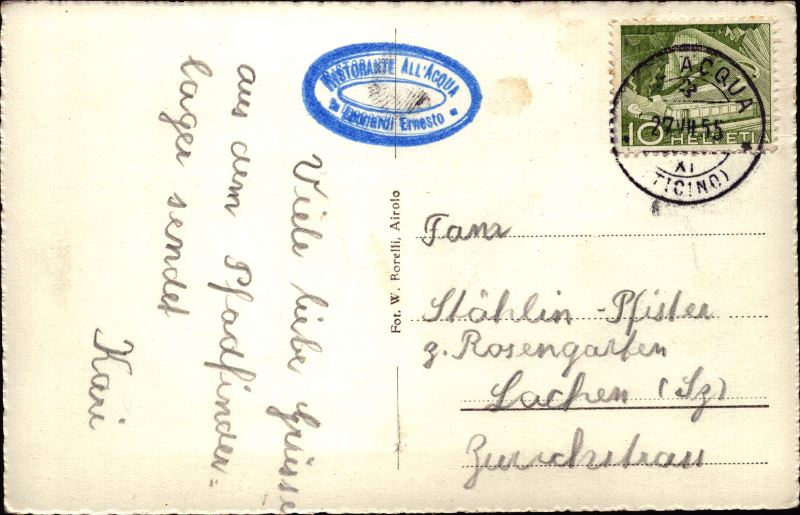 RISTORANTE ALL'ACQUA
Ernesto
ACQUA
27.VII.55
XI
(TICINO)
10 HELVETIA
Viele liebe Grüsse
aus dem Pfadfinder=
lager sendet
Kari
Fot. W. Borelli, Airolo
Fam.
Stählin-Pfister
z. Rosengarten
Lachen (Sz)